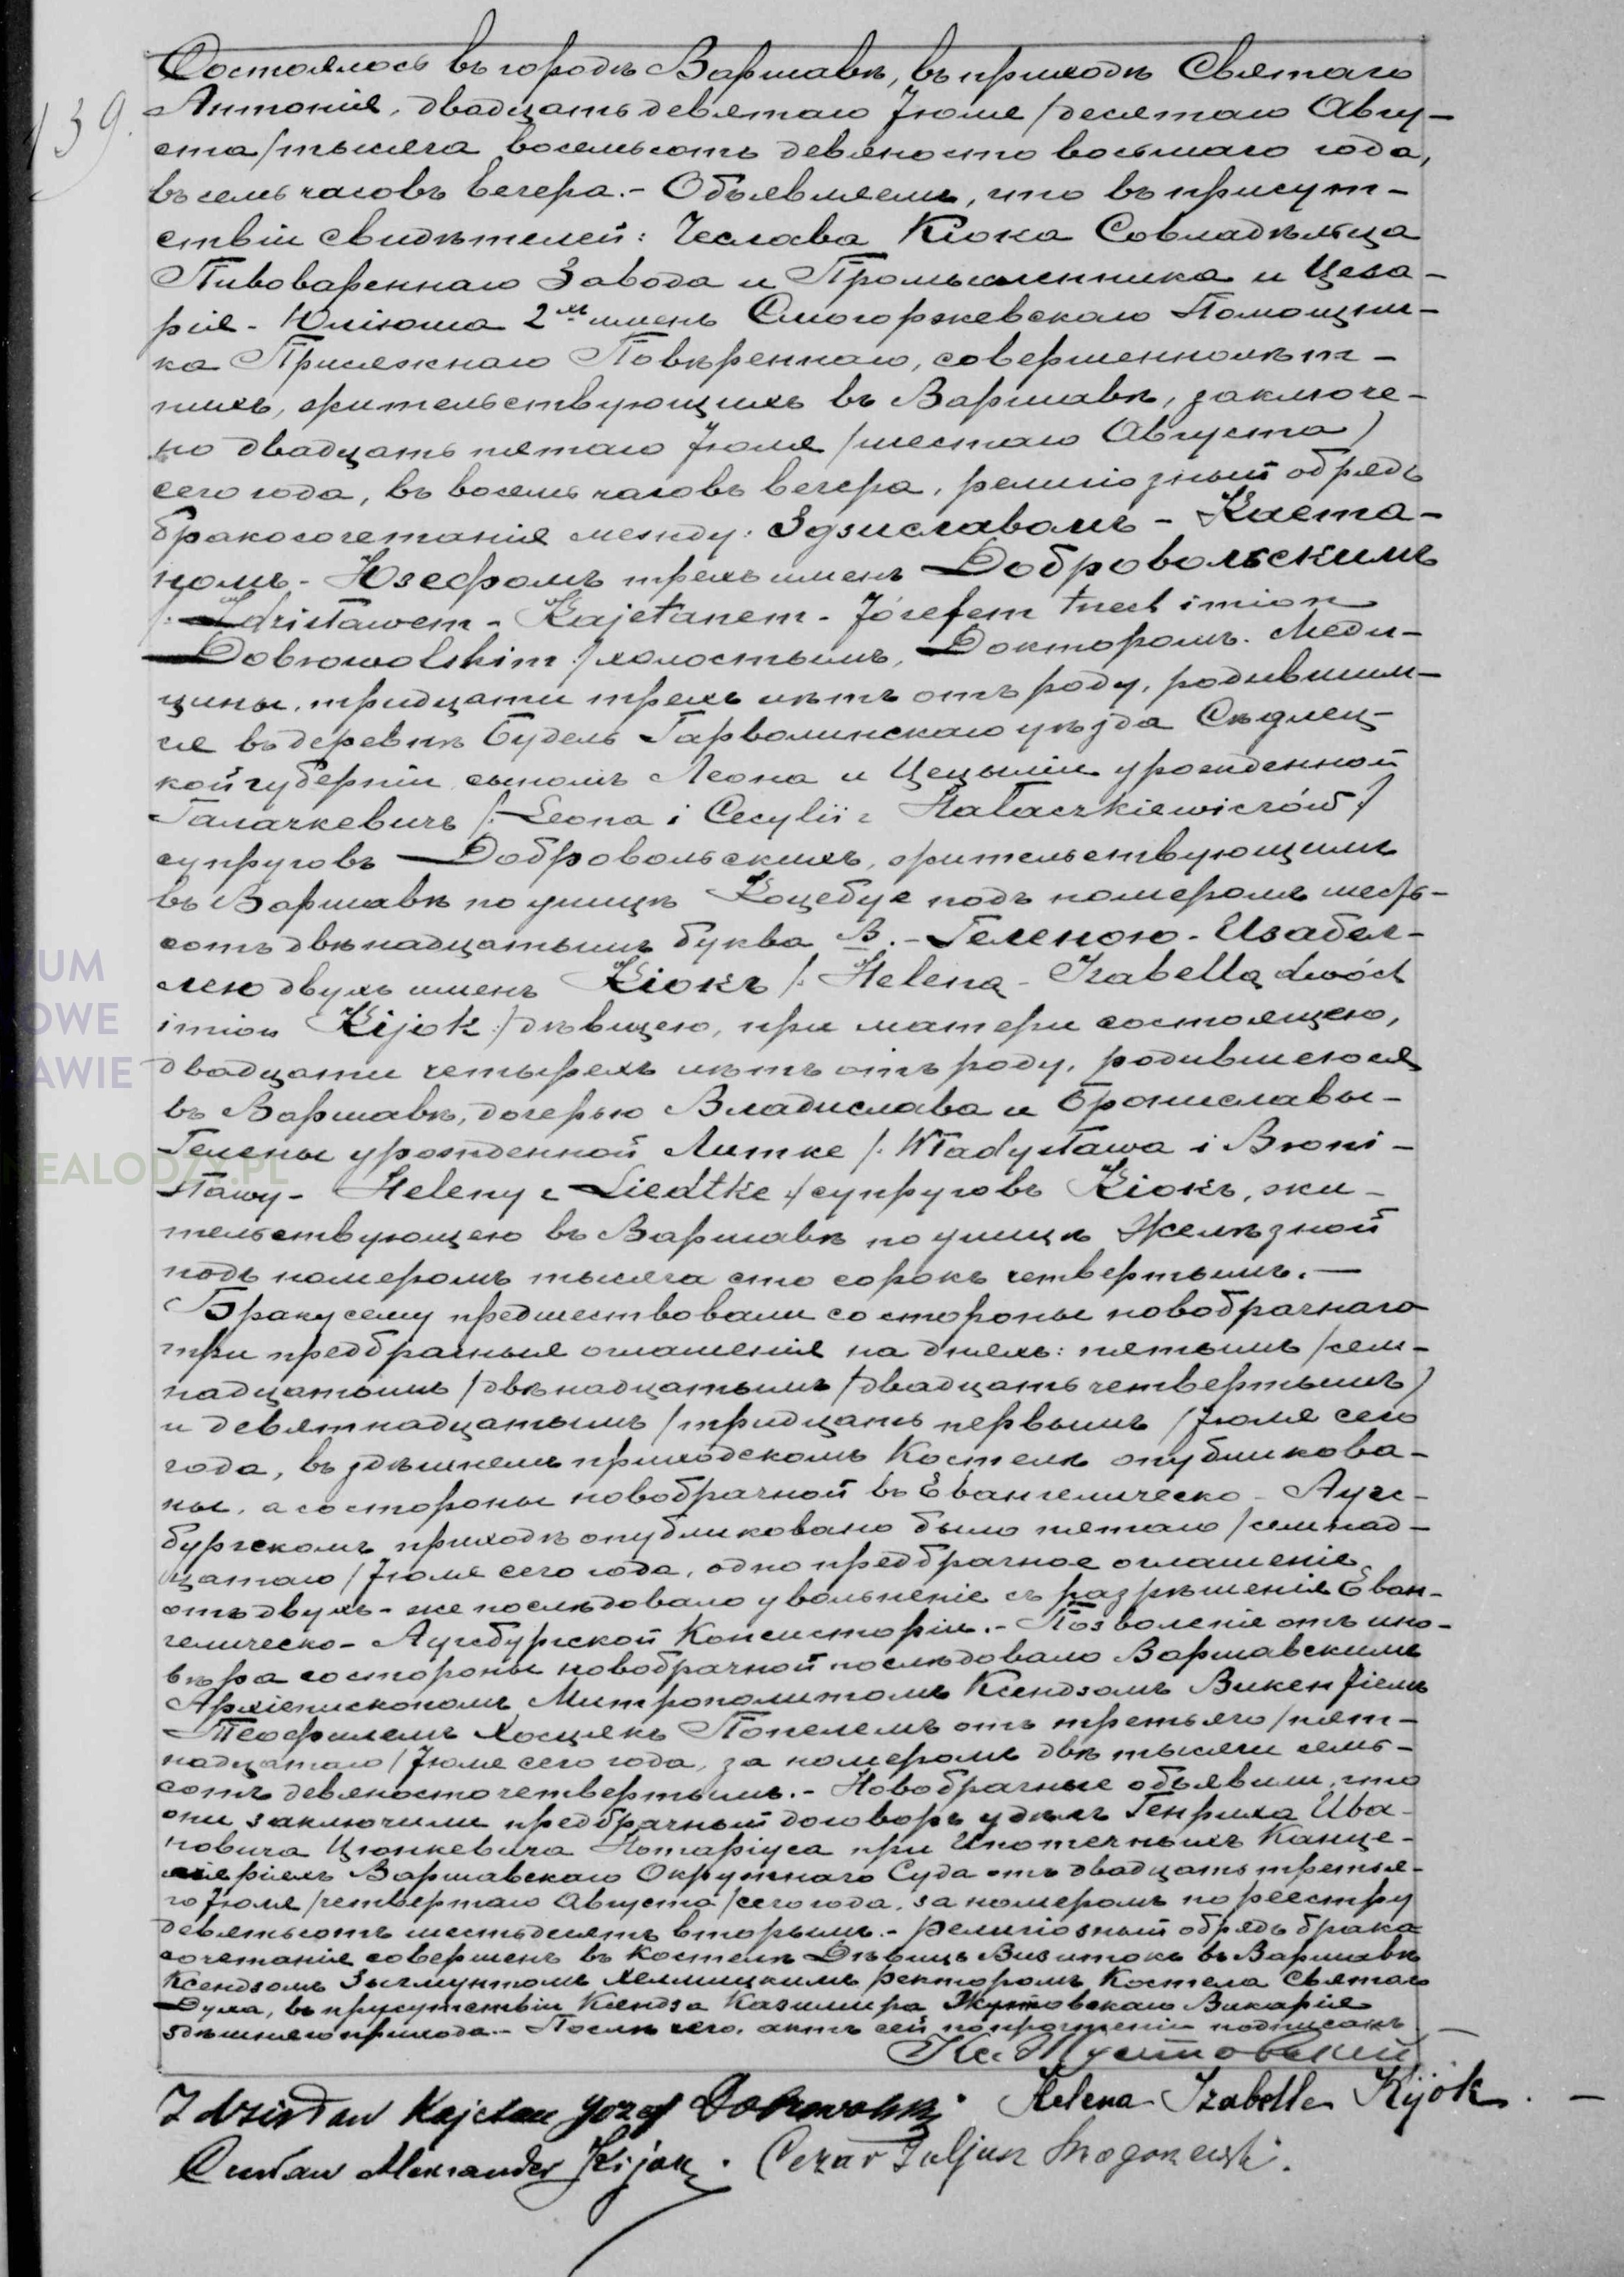 139.
Состоялось въ городѣ Варшавѣ, въ приходѣ Святаго
Антонія, двадцать девятаго Іюля /десятаго Авгу-
ста/ тысяча восемьсотъ девяносто восьмаго года,
въ семь часовъ вечера.- Объявляемъ, что въ присут-
ствіи свидѣтелей: Чеслава Кіока Совладѣльца
Пивовареннаго Завода и Промышленника и Цеза-
рія - Юліюша 2хъ именъ Смогоржевскаго Помощни-
ка Присяжнаго Повѣреннаго, совершеннолѣт-
нихъ, жительствующихъ въ Варшавѣ, заключе-
но двадцать пятаго Іюля /шестаго Августа/
сего года, въ восемь часовъ вечера, религіозный обрядъ
бракосочетанія между: Здзиславомъ - Каета-
номъ - Юзефомъ трехъ именъ Добровольскимъ
/: Zdzisławem - Kajetanem - Józefem trzech imion
Dobrowolskim :/ холостымъ, Докторомъ Меди-
цины, тридцати трехъ лѣтъ отъ роду, родившим-
ся въ деревнѣ Будель Гарволинскаго уѣзда Сѣдлец-
кой губерніи, сыномъ Леона и Цецыліи урожденной
Галачкевичъ /: Leona i Cecylii z Hałaczkiewiczów :/
супруговъ Добровольскихъ, жительствующимъ
въ Варшавѣ по улицѣ Коцебуе подъ номеромъ шесть-
сотъ двѣнадцатымъ буква В. - Геленою - Изабел-
лею двухъ именъ Кіокъ /: Heleną - Izabellą dwóch
imion Kijok :/ дѣвицею, при матери состоящею,
двадцати четырехъ лѣтъ отъ роду, родившеюся
въ Варшавѣ, дочерью Владислава и Брониславы-
Гелены урожденной Литке /: Władysława i Broni-
sławy - Heleny z Liedtke :/ супруговъ Кіокъ, жи-
тельствующею въ Варшавѣ по улицѣ Желѣзной
подъ номеромъ тысяча сто сорокъ четвертымъ. —
Браку сему предшествовали со стороны новобрачнаго
три предбрачныя оглашенія на дняхъ: пятымъ /сем-
надцатымъ/ двѣнадцатымъ /двадцать четвертымъ/
и девятнадцатымъ /тридцать первымъ/ Іюля сего
года, въ здѣшнемъ приходскомъ Костелѣ опубликова-
ны, а со стороны новобрачной въ Евангелическо - Аугс-
бургскомъ приходѣ опубликовано было пятаго /семнад-
цатаго/ Іюля сего года, одно предбрачное оглашеніе,
отъ двухъ - же послѣдовало увольненіе съ разрѣшенія Еван-
гелическо - Аугсбургской Консисторіи.- Позволеніе отъ ино-
вѣра со стороны новобрачной послѣдовало Варшавскимъ
Архіепископомъ Митрополитомъ Ксендзомъ Викентіемъ
Теофилемъ Хосцякъ Попелемъ отъ третьяго /пят-
надцатаго/ Іюля сего года, за номеромъ двѣ тысячи семь-
сотъ девяносто четвертымъ.- Новобрачные объявили, что
они заключили предбрачный договоръ у дѣлъ Генриха Ива-
новича Цюнкевича Нотаріуса при Ипотечныхъ Канце-
ляріяхъ Варшавскаго Окружнаго Суда отъ двадцать третья-
го Іюля /четвертаго Августа/ сего года, за номеромъ по реестру
девятьсотъ шестьдесятъ вторымъ.- Религіозный обрядъ брака
сочетанія совершенъ въ Костелѣ Дѣвицъ Визитокъ въ Варшавѣ
Ксендзомъ Зыгмунтомъ Хелмицкимъ Ректоромъ Костела Святаго
Духа, въ присутствіи Ксендза Казимира Жултовскаго Викарія
здѣшняго прихода.- Послѣ чего, актъ сей по прочтеніи подписанъ
Zdzisław Kajetan Józef Dobrowolski. Helena Izabella Kijok.
Czesław Alexander Kijok. Cezar Juljusz Smogorzewski.